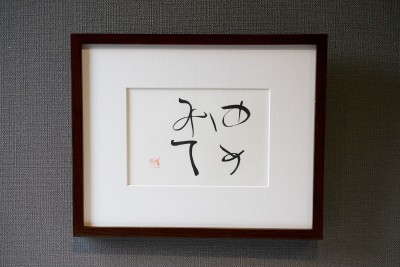 ゆめ
みて